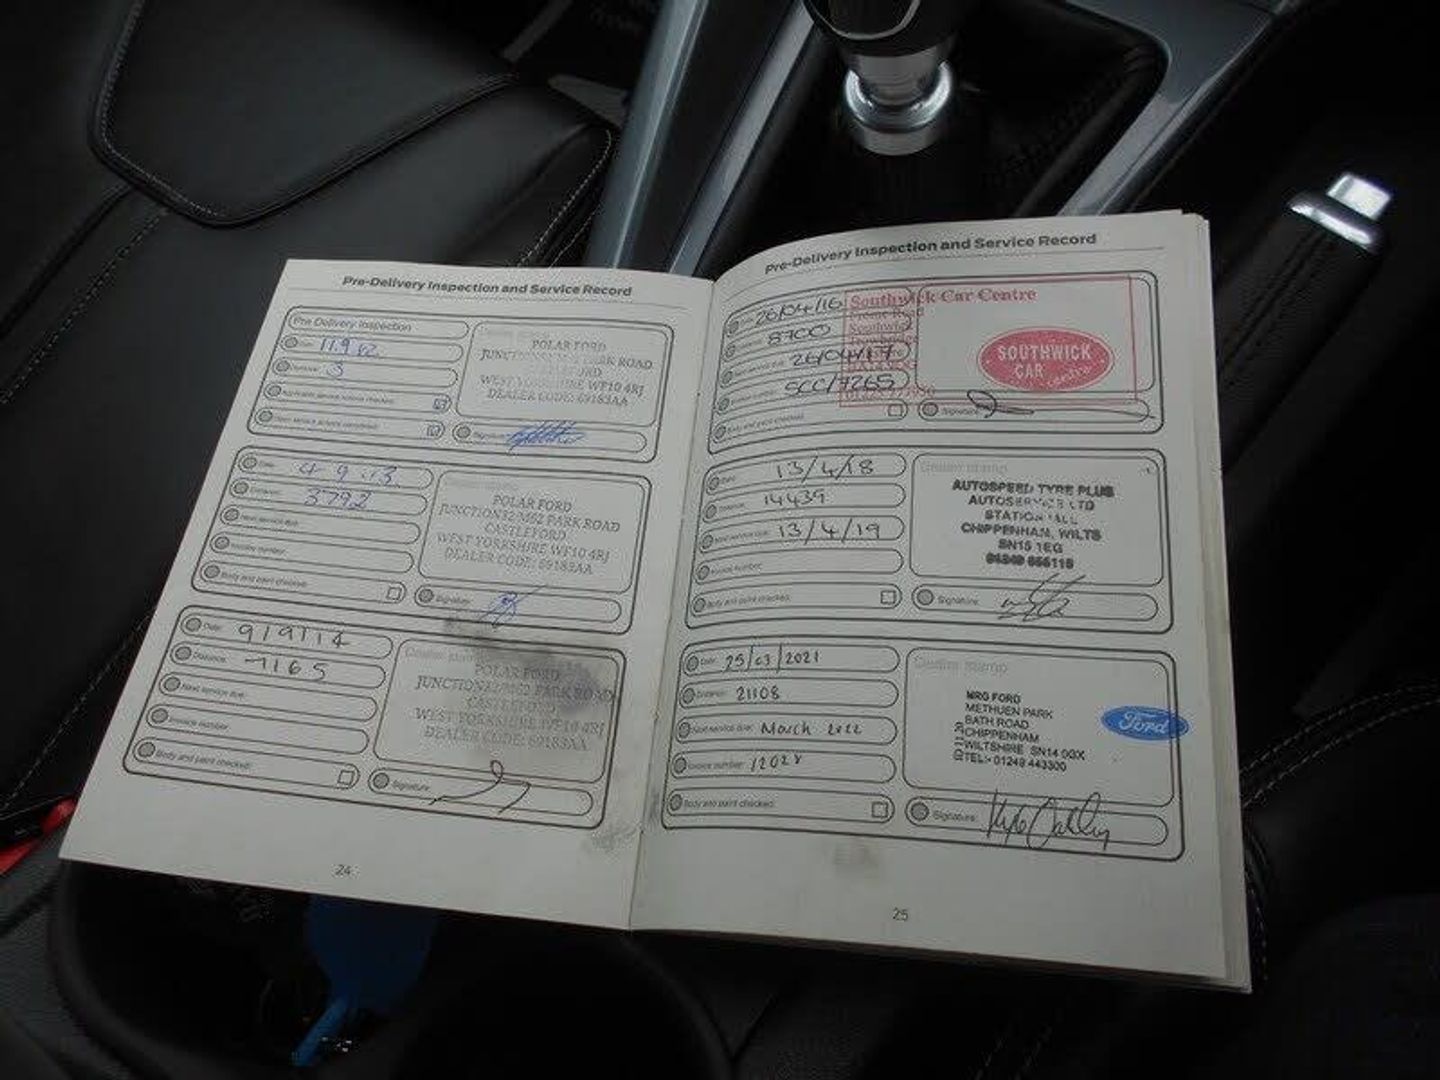 Pre-Delivery Inspection and Service Record
Pre Delivery Inspection
Date:
Distance: 3
Signature:
POLAR FORD
PARK ROAD
WEST YORKSHIRE WF10 4RJ
DEALER CODE: 69183AA
Date: 4 9 13
Distance: 3792
Next service due:
Invoice number:
Body and paint checked:
POLAR FORD
JUNCTION32/M62 PARK ROAD
CASTLEFORD
WEST YORKSHIRE WF10 4RJ
DEALER CODE: 69183AA
Signature:
Date: 9/9/14
Distance: 7165
Next service due:
Invoice number:
Body and paint checked:
Dealer stamp
POLAR FORD
JUNCTION32/M62 PARK ROAD
CASTLEFORD
WEST YORKSHIRE WF10 4RJ
DEALER CODE: 69183AA
Signature:
24
Pre-Delivery Inspection and Service Record
26/04/16
8700
26/04/17
SCC/7265
Body and paint checked:
Southwick Car Centre
Frome Road
Southwick
SOUTHWICK
CAR
centre
Signature:
Date: 13/4/18
Distance: 14439
Next service due: 13/4/19
Invoice number:
Body and paint checked:
Dealer stamp
AUTOSPEED TYRE PLUS
AUTOSERVICE LTD
STATION HILL
CHIPPENHAM, WILTS
SN15 1EG
Signature:
Date: 25/03/2021
Distance: 21108
Next service due: March 2022
Invoice number: 12028
Body and paint checked:
Dealer stamp
MRG FORD
METHUEN PARK
BATH ROAD
CHIPPENHAM
WILTSHIRE SN14 0GX
TEL:- 01249 443300
Ford
Signature: Kyle Oakley
25